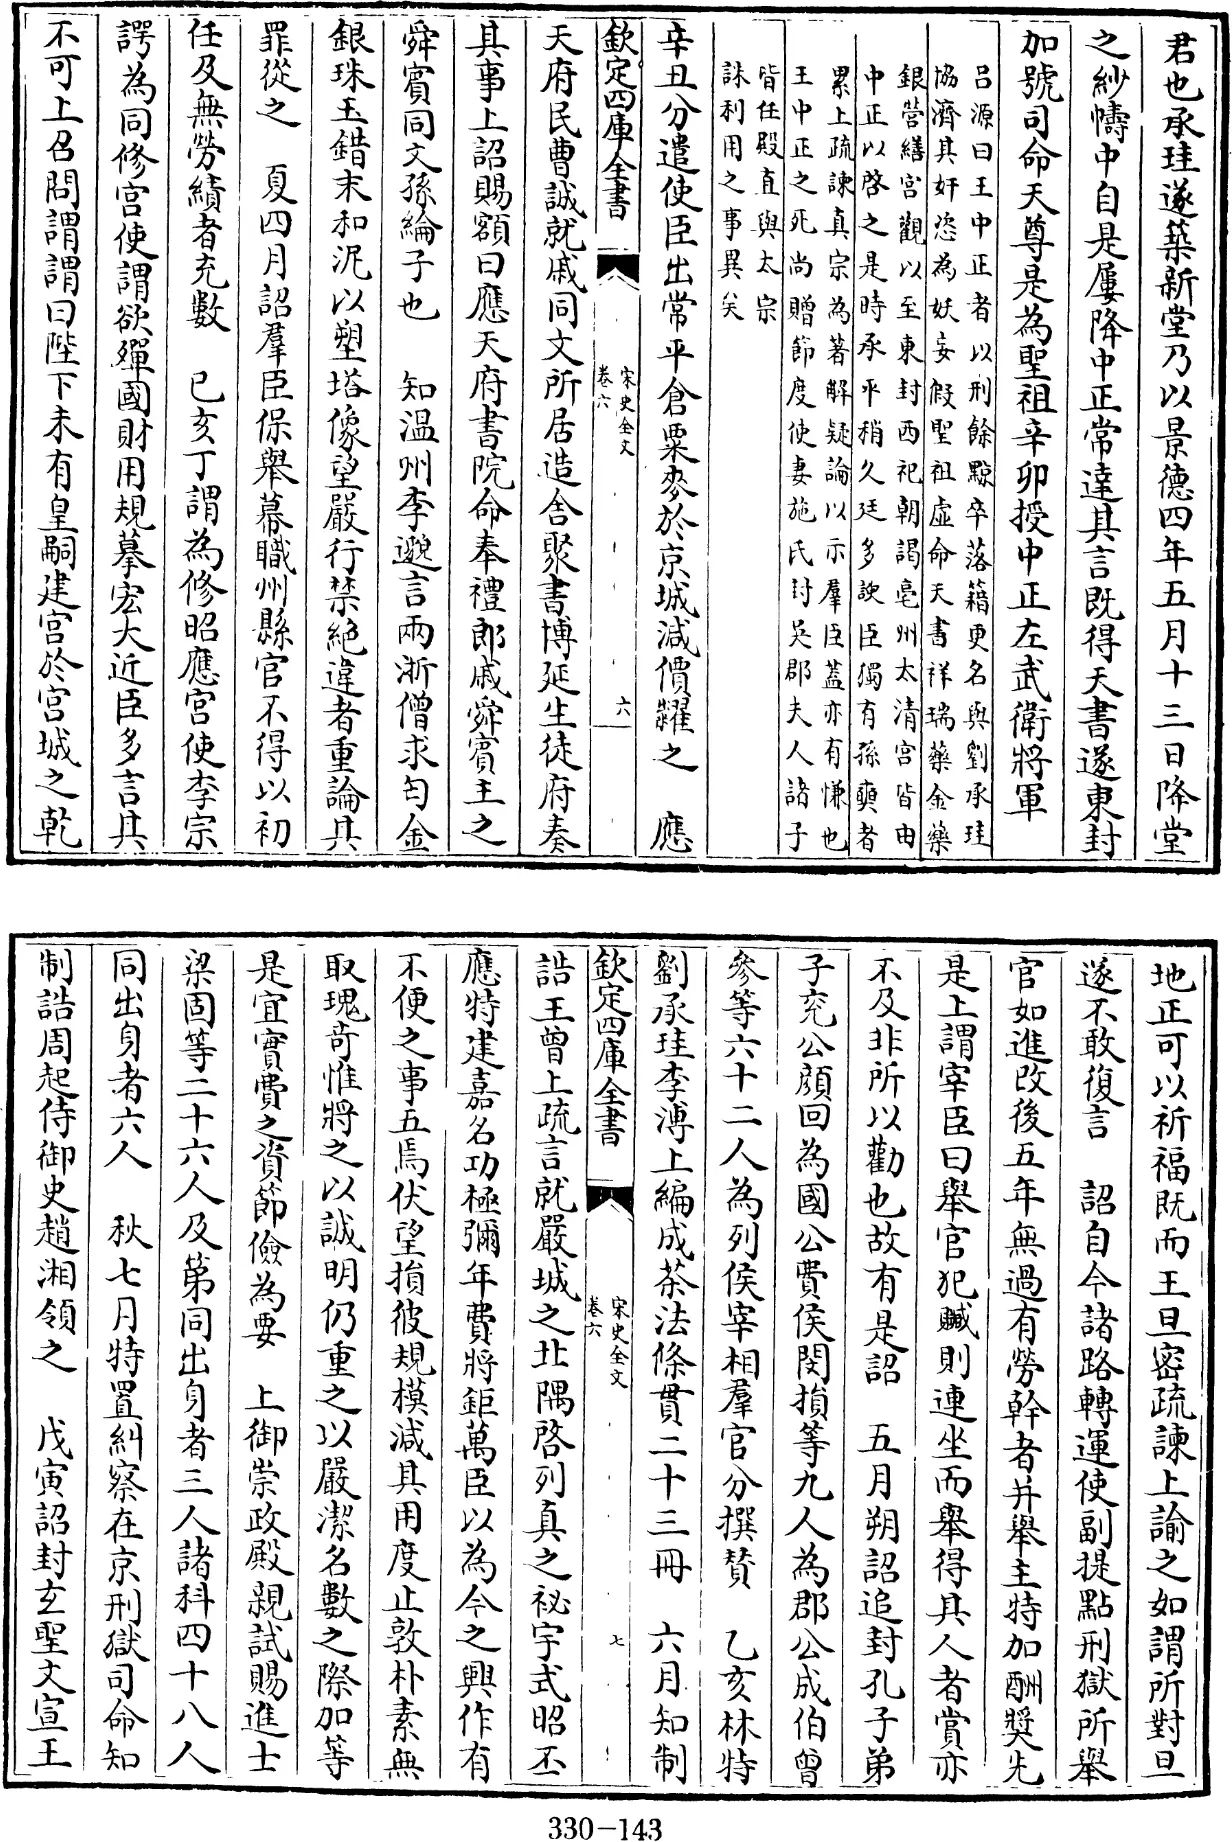 君也承珪遂築新堂乃以景德四年五月十三日降堂
之紗幬中自是屢降中正常達其言既得天書遂東封
加號司命天尊是為聖祖辛卯授中正左武衛將軍
呂源曰王中正者以刑餘黥卒落籍更名與劉承珪
協濟其奸恣為妖妄假聖祖虛命天書祥瑞藥金藥
銀營繕宮觀以至東封西祀朝謁亳州太清宮皆由
中正以啓之是時承平稍久廷多諛臣獨有孫奭者
累上疏諫真宗為著解疑論以示羣臣蓋亦有慊也
王中正之死尚贈節度使妻施氏封吳郡夫人諸子
皆任殿直與太宗
誅利用之事異矣
辛丑分遣使臣出常平倉粟麥於京城減價糶之　應
欽定四庫全書
宋史全文
卷六
六
天府民曹誠就戚同文所居造舍聚書博延生徒府奏
其事上詔賜額曰應天府書院命奉禮郎戚舜賓主之
舜賓同文孫綸子也　知溫州李邈言兩浙僧求匄金
銀珠玉錯末和泥以塑塔像望嚴行禁絕違者重論其
罪從之　夏四月詔羣臣保舉幕職州縣官不得以初
任及無勞績者充數　已亥丁謂為修昭應宮使李宗
諤為同修宮使謂欲殫國財用規摹宏大近臣多言其
不可上召問謂謂曰陛下未有皇嗣建宮於宮城之乾
地正可以祈福既而王旦密疏諫上諭之如謂所對旦
遂不敢復言　詔自今諸路轉運使副提點刑獄所舉
官如進改後五年無過有勞幹者并舉主特加酬奬先
是上謂宰臣曰舉官犯贓則連坐而舉得其人者賞亦
不及非所以勸也故有是詔　五月朔詔追封孔子弟
子兖公顏回為國公費侯閔損等九人為郡公成伯曾
參等六十二人為列侯宰相羣官分撰贊　乙亥林特
劉承珪李溥上編成茶法條貫二十三冊　六月知制
欽定四庫全書
宋史全文
卷六
七
誥王曾上疏言就嚴城之北隅啓列真之祕宇式昭丕
應特建嘉名功極彌年費將鉅萬臣以為今之興作有
不便之事五焉伏望損彼規模減其用度止敦朴素無
取瑰奇惟將之以誠明仍重之以嚴潔名數之際加等
是宜實費之資節儉為要　上御崇政殿親試賜進士
梁固等二十六人及第同出身者三人諸科四十八人
同出身者六人　秋七月特置糾察在京刑獄司命知
制誥周起侍御史趙湘領之　戊寅詔封玄聖文宣王
330-143